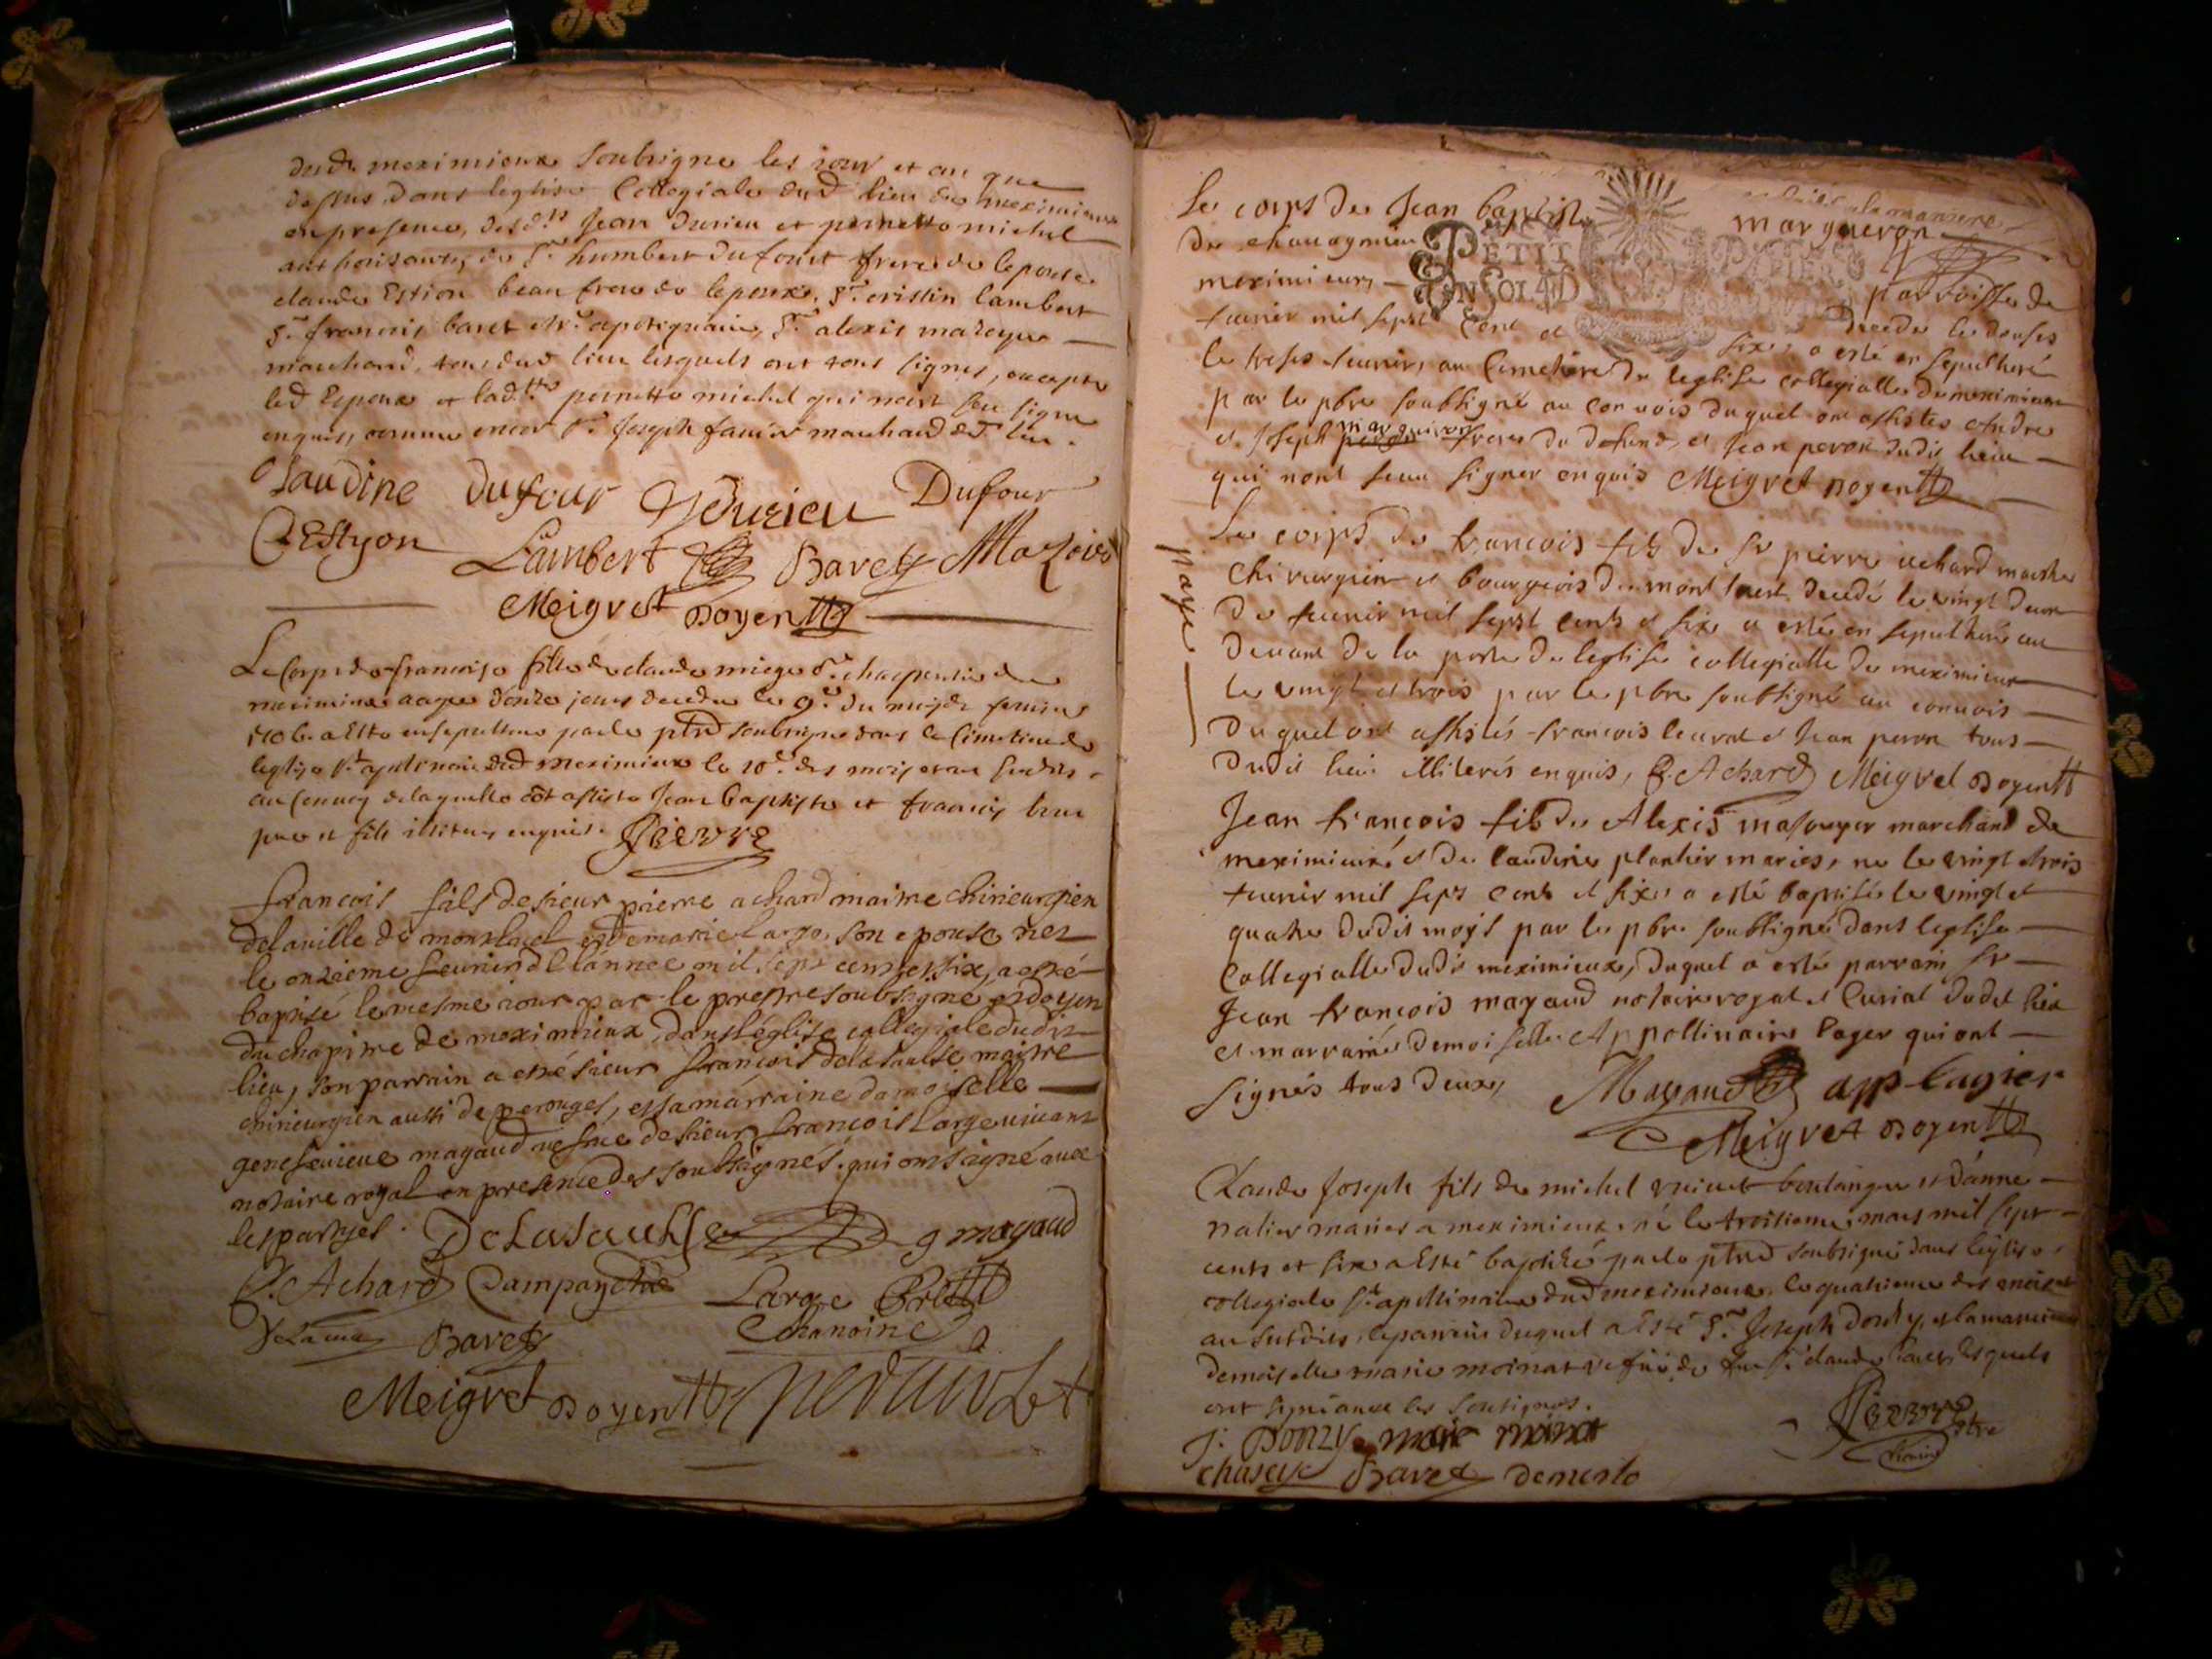 dud meximieux soubsigne les jour et an que
dessus dans leglise Collegiale dud lieu de meximieux
en presence, desd.ts Jean Durieu et pernette michel
authorisants, de Sr humbert dufour frere de lepouse
claude Estion beau frere de lepoux, Sr cristin lambert
Sr francois baret apotiquaire, Sr alexis mazoyer
marchand, tous dud lieu lesquels ont tous signes, excepte
led Espoux et lad.tte pernette michel qui nont sceu signe
enquis, comme encor Sr Joseph favier marchand dud lieu.
Claudine dufour JDurieu Dufour
CEstyon Lambert Baret AMazoier
Meigret Doyen
Le Corps de francoise fille de claude miege Sr charpentier de
meximieux aagee donze jours decedee le 9e du mois de fevrier
1706. a Este ensepulture par le ptre soubsigne dans le Cimetiere de
leglise St apolinaire dud meximieux le 10e des mois et an susdits
au convoy de laquelle ont assiste Jean baptiste et francois
pere et fils illiteres enquis. Fievre
francois fils de sieur pierre achard maitre chirieurgien
de la ville de montluel et de marie large, son epouse nez
le onzieme feurier de lannee mil sept cents et six, a esté
baptisé le mesme iour par le prestre soubsigné et doyen
du chapitre de meximieux, dans léglise collegiale dudit
lieu, son parrain a esté sieur francois delasausse maitre
chirieurgien aussi de perouges, et sa marraine damoiselle
genefuieue magaud vefue de sieur francois large uiuant
notaire royal en presence des soubsignés qui ont signé auec
les partyes. DeLasausse g magaud
P. Achard Dampaychat Large
Chanoine
Baret
Meigret Doyen perauolet
Le corps de Jean baptiste margueron
de chauagnieu parroisse de
meximieux decede le douse
feurier mil sept Cent et six, a esté en sepulturé
le trese feurier, au Cimetiere de leglise collegialle de meximieux
par le pbre soubsigné au conuois duquel ont assistes Andre
et Joseph margueron freres du defund, et Jean peron dudit lieu
qui nont sceu signer enquis Meigret Doyen
paye
Le corps de francois fils de Sr pierre achard maistre
chirurgien et bourgeois de montluel decedé le vingt deux
de feurier mil sept cents et six a esté en sepulturé au
deuant de la porte de leglise collegialle de meximieux
le vingt et trois par le pbre soubsigné au conuois
duquel ont assistés francois leurat et Jean peron tous
dudit lieu illiterés enquis, P. Achard Meigret Doyen
Jean francois fils de Alexis masoyer marchand de
meximieux et de claudine plantier mariés, ne le vingt et trois
feurier mil sept cents et six a esté baptisé le vingt et
quatre dudit moys par le pbre soubsigné dans leglise
Collegialle dudit meximieux, duquel a esté parrain Sr
Jean francois magaud notaire royal et Curial dudit lieu
et marraine demoiselle Appollinaire lager qui ont
signés tous deux, Magaud app lagier
Meigret Doyen
Claude Joseph fils de michel boulanger et danne
nalier maries a meximieux, né le troisieme mars mil sept
cents et six a Esté baptisé par le ptre soubsigné dans leglise
collegiale St apollinaire dud meximieux, le quatrieme des mois et
an susdits, le parrain duquel a Esté Sr Joseph donzy, et la marraine
demoiselle marie moinat vefue de feu Sr claude lesquels
ont signé auec les soubsignés.
J. Donzy marie moinat Fievre ptre
chaseye Baret demerlo